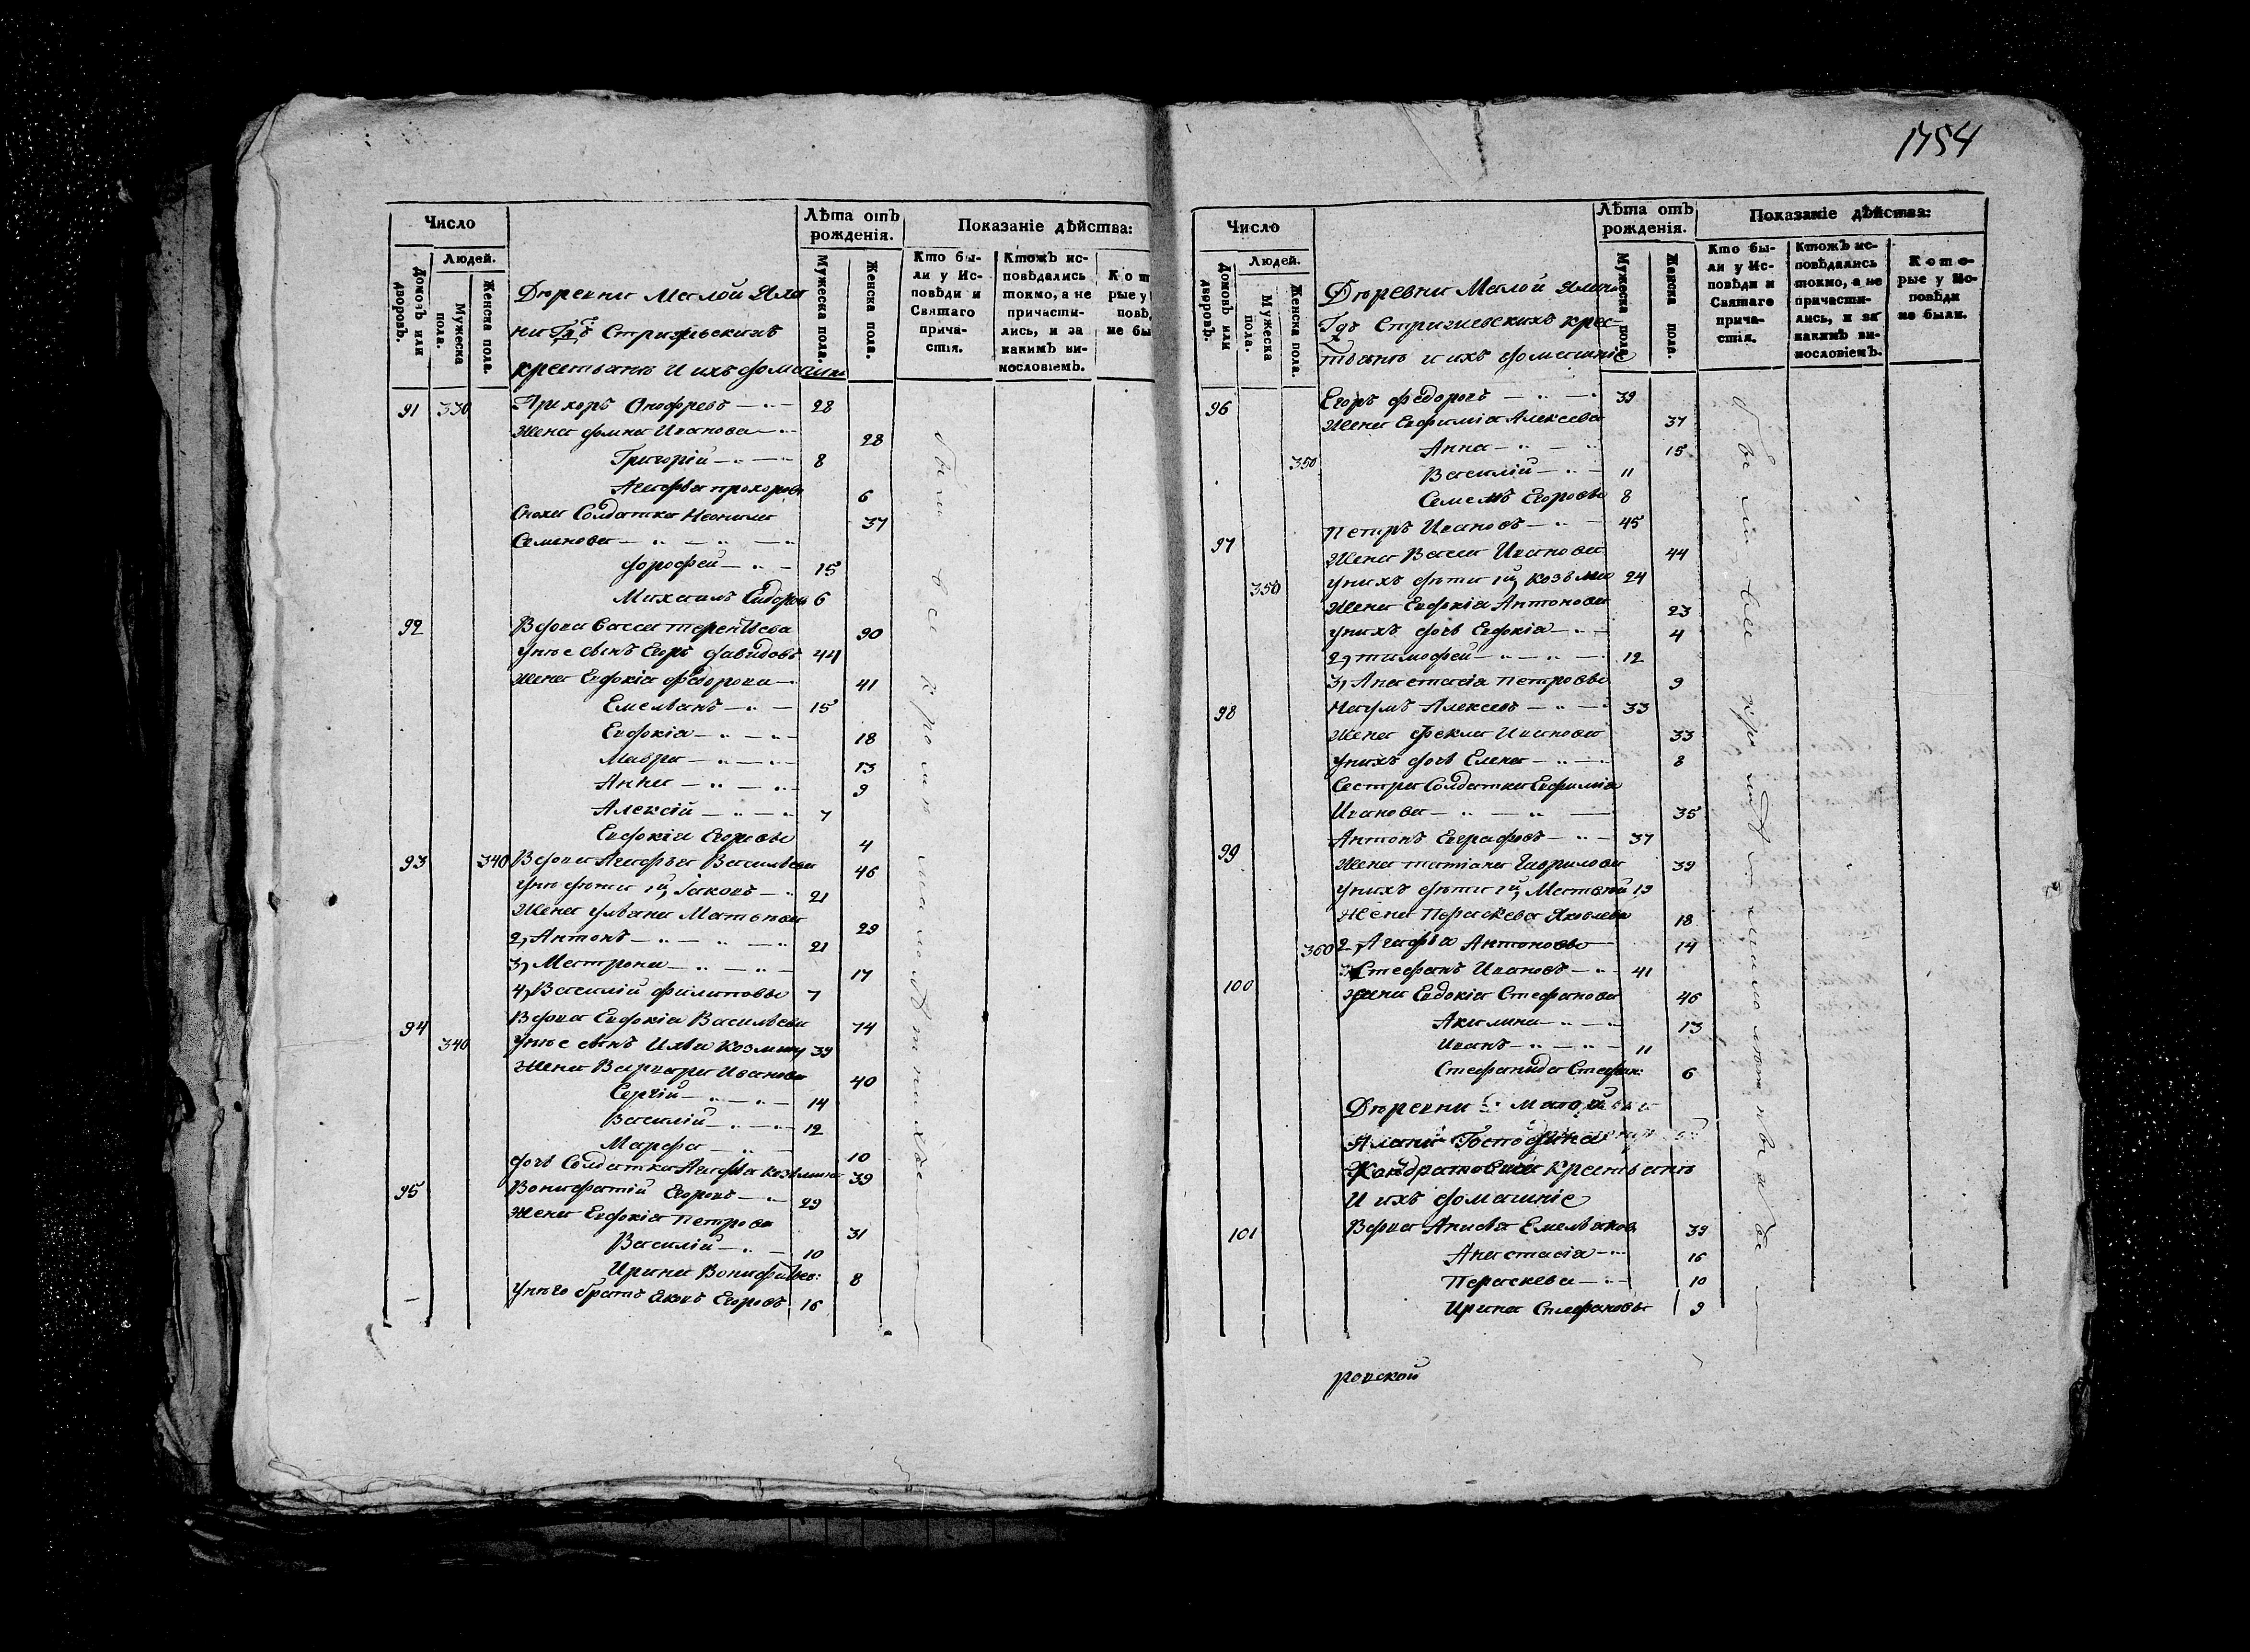 1754
Число
Лѣта отъ рожденія.
Показаніе дѣйства:
Людей.
Домовъ или дворовъ.
Мужеска пола.
Женска пола.
Мужеска пола.
Женска пола.
Кто были у Исповѣди и Святаго причастія.
Ктожъ исповѣдались токмо, а не причастились, и за какимъ винословіемъ.
Деревни Малой
крестьянъ и ихъ домашніе
91 330 Прохоръ Онофревъ 28
Жена Домна Иванова 28
Григорій 8
Агафья Прохоровы 6
Сноха Солдатка Неонила 37
Семенова
Дорофей 15
Михаилъ Сидоровы 6
92 Вдова Васса Терентьева 90
У нее сынъ Егоръ Давидовъ 44
Жена Евдокіа Федорова 41
Емельянъ 15
Евдокіа 18
Мавра 13
Анна 9
Алексій 7
Евдокіа Егоровы 4
93 340 Вдова Агафья Васильева 46
У нее дети 1й, Іаковъ 21
Жена Ульяна Матвѣева 29
2, Антонъ 21
3, Матрона 17
4, Василій Филиповы 7
94 Вдова Евдокіа Васильева 74
340 У нее сынъ Илья Козминъ 39
Жена Варвара Иванова 40
Сергій 14
Василій 12
Марфа 10
Дочь Солдатка Агафья Козьмина 39
95 Вонифатій Егоровъ 29
Жена Евдокіа Петрова 31
Василій 10
Ирина Вонифатьев: 8
У него братъ Яковъ Егоровъ 16
Число
Лѣта отъ рожденія.
Показаніе дѣйства:
Людей.
Домовъ или дворовъ.
Мужеска пола.
Женска пола.
Мужеска пола.
Женска пола.
Кто были у Исповѣди и Святаго причастія.
Ктожъ исповѣдались токмо, а не причастились, и за какимъ винословіемъ.
Которые у Исповѣди не были.
Деревни Малой
Стригалевскихъ крес
тьянъ и ихъ домашніе
96 Егоръ Федоровъ 39
Жена Евфиміа Алексева 37
Анна 15
350 Василій 11
Семенъ Егоровы 8
97 Петръ Ивановъ 45
Жена Васса Иванова 44
350 У нихъ дети 1й, Козьма 24
Жена Евдокіа Антонова 23
У нихъ дочь Евдокіа 4
2, Тимофей 12
3, Анастасіа Петровы 9
98 Наумъ Алексевъ 33
Жена Фекла Иванова 33
У нихъ дочь Елена 8
Сестра Солдатка Евфиміа
Иванова 35
99 Антонъ Евграфовъ 37
Жена Татіана Гаврилова 39
У нихъ дети 1й, Матвѣй 19
Жена Параскева Яковлева 18
360 2, Агафья Антоновы 14
100 Стефанъ Ивановъ 41
Жена Евдокіа Стефанова 46
Акилина 13
Иванъ 11
Стефанида Стефан: 6
Деревни
Господина
крестьянъ
и ихъ домашніе
101 Вдова Анисья Емельянов 39
Анастасіа 16
Параскева 10
Ирина Стефановы 9
ровской